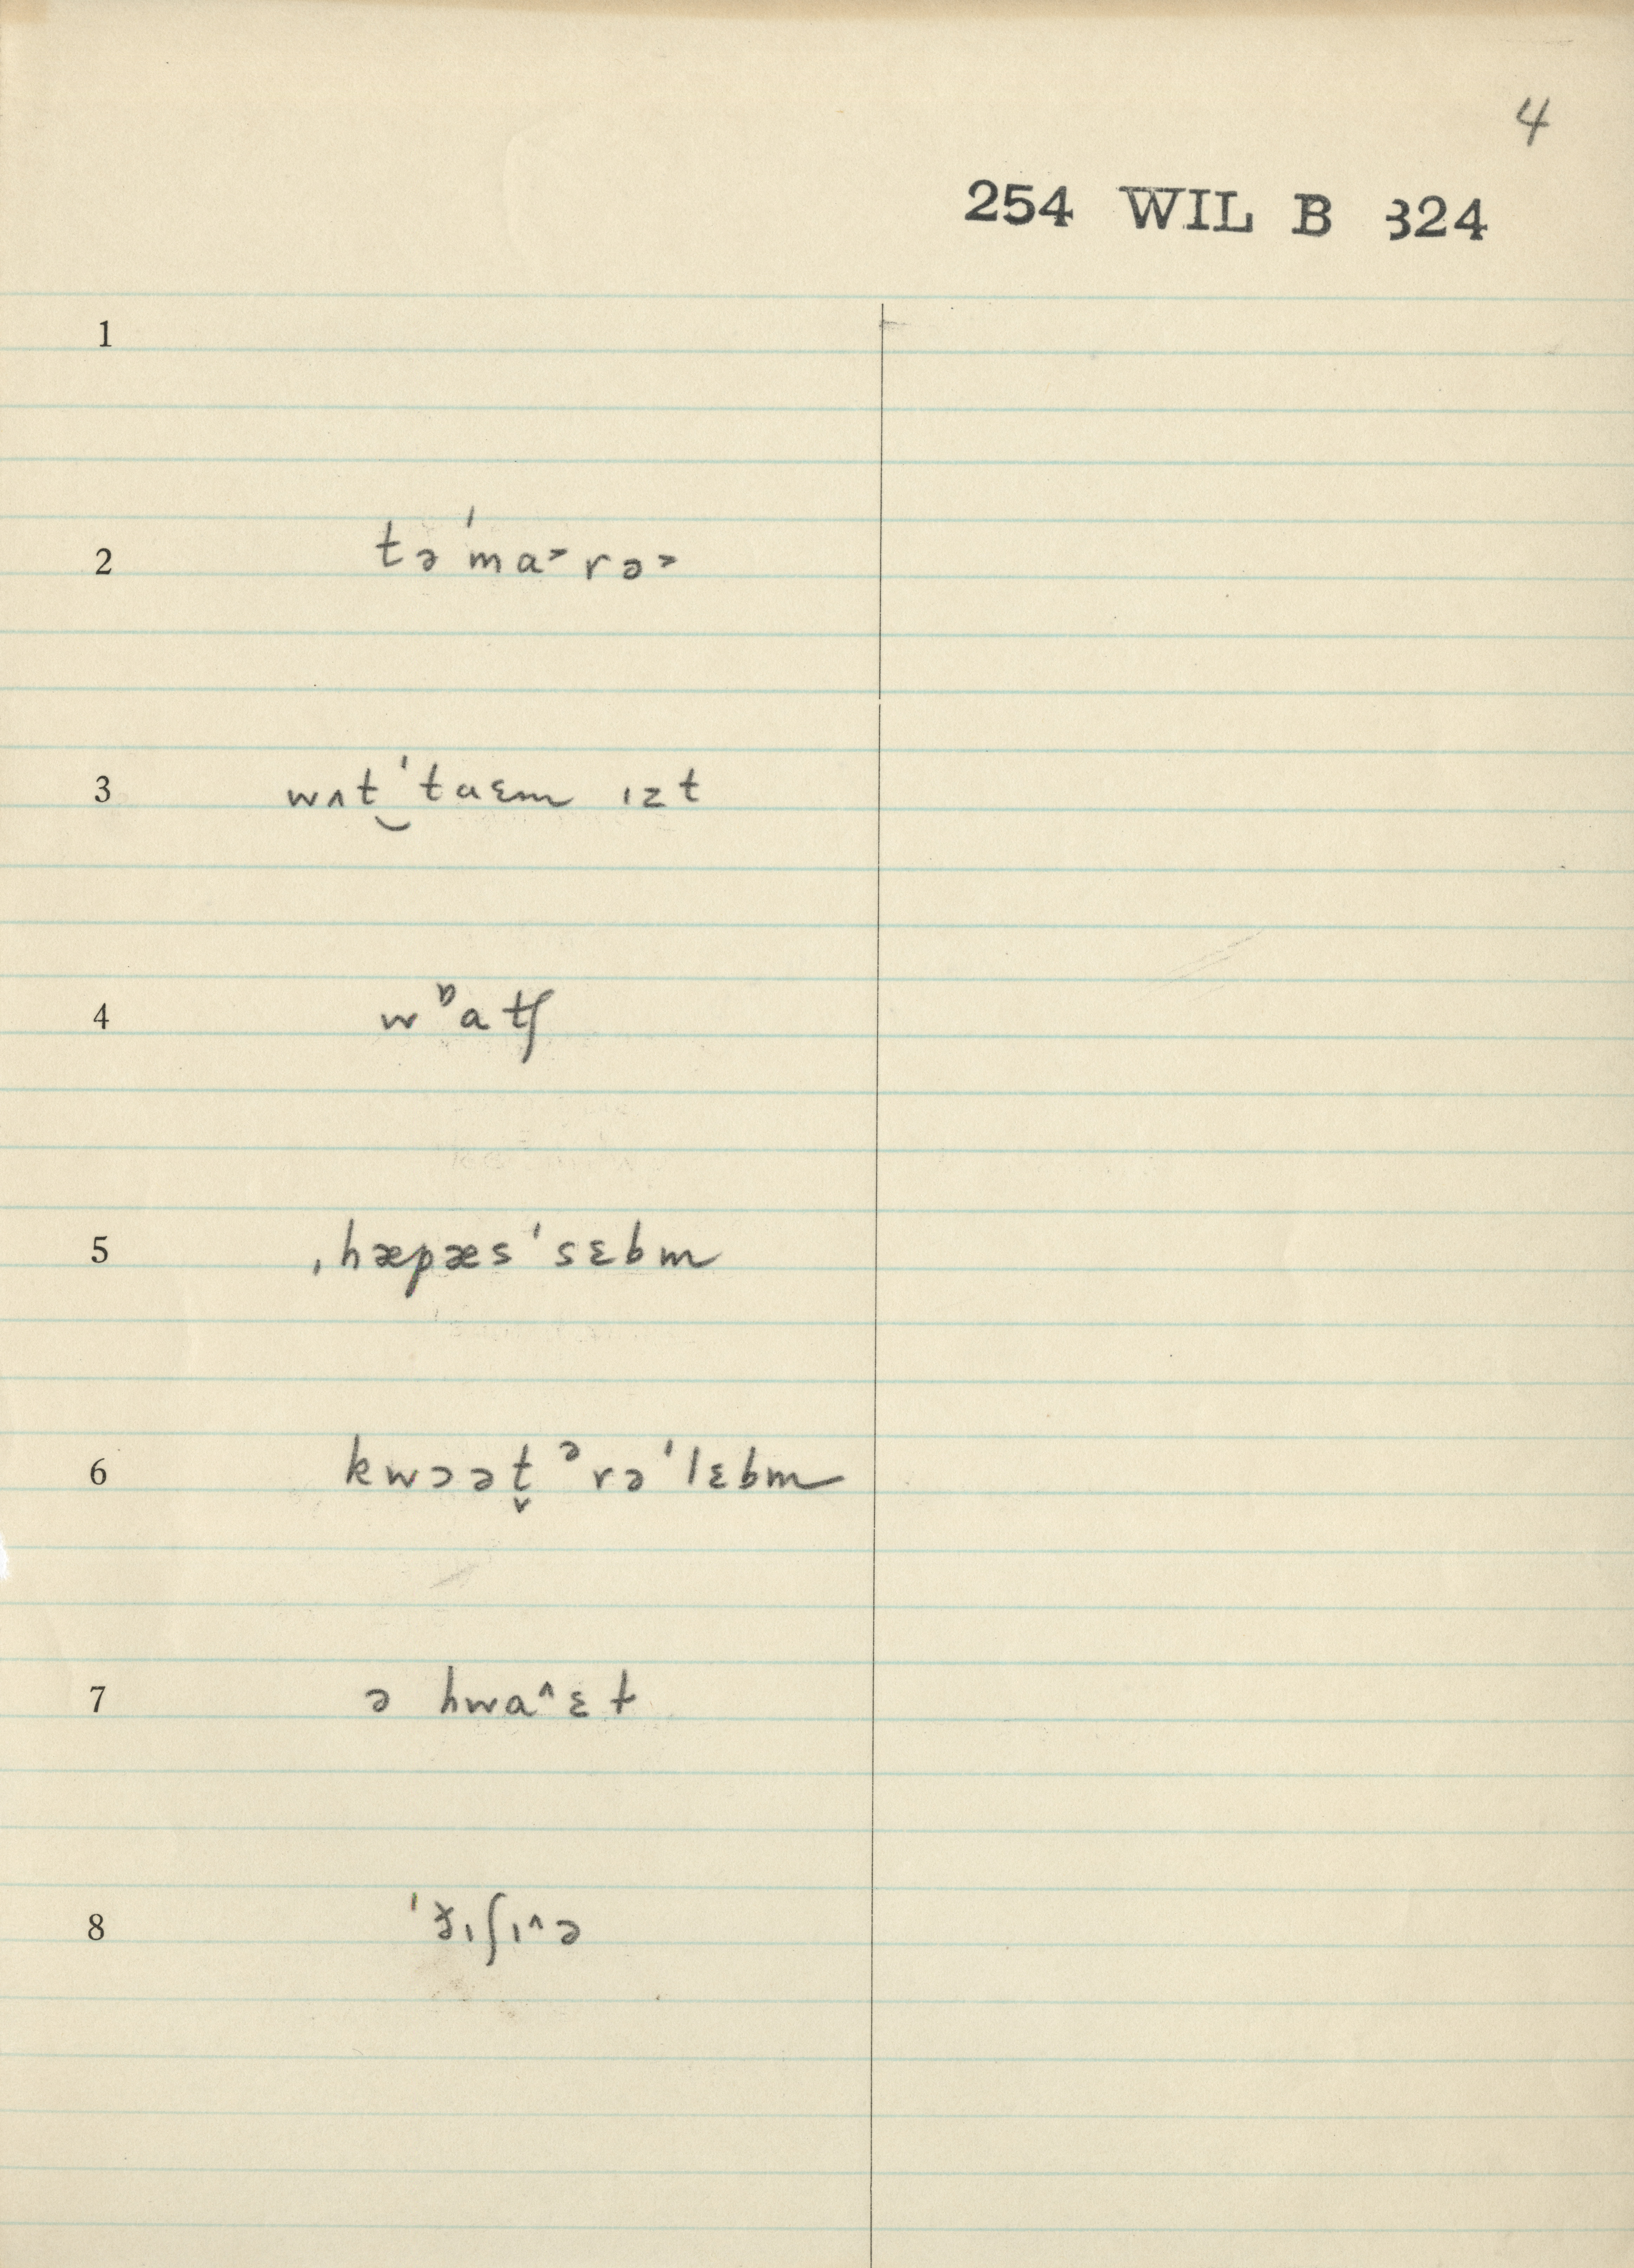 4
254 WIL B 324
1
2 təˈma˃rə˃
3 wʌt‿ˈtaɛm ɪzt
4 wᶛatʃ
5 ˌhæpæsˈsɛbm
6 kwɔət̬ᵊrəˈlɛbm
7 ə hwa^ɛt
8